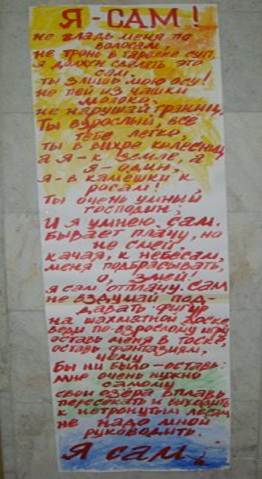 Я - САМ!
не гладь меня по
волосам,
не тронь в тарелке суп,
я должен сделать это
сам.
ты злишь мою осу!
не пей из чашки
молока,
не нарушай границу,
Ты взрослый, всё
тебе легко,
ты в вихре колесниц,
а я - к земле, а
я - один,
я - в камешки к
росам!
Ты очень умный
господин,
И я умнею сам.
Бывает плачу, но
не смей,
качая, к небесам,
меня подбрасывать,
о, змей,
я сам отплачу. сам
не вздумай под-
давать фигур
на шахматной доске,
веди по-взрослому игру
оставь меня в тоске,
оставь фантазиям,
чему
бы ни было - оставь:
мне очень нужно
самому
свои озёра вплавь
пересекать и выходить
к нетронутым лесам,
не надо мной
руководить.
Я сам